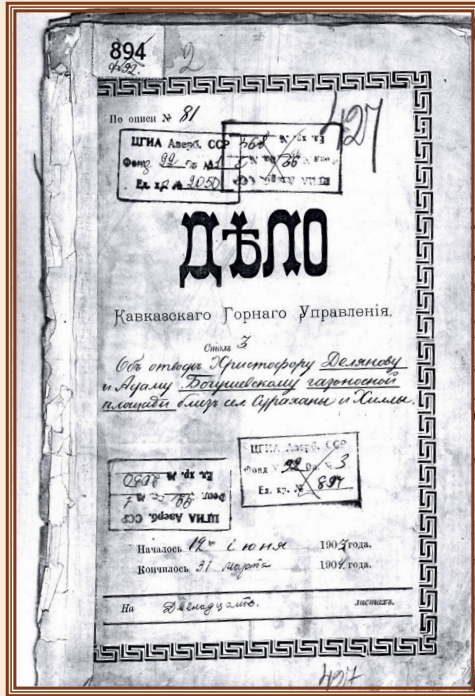 894
2
По описи № 81
427
ЦГИА Азерб. ССР
Фонд 92 оп. №1
Ед. хр. № 2050
ДѢЛО
Кавказскаго Горнаго Управленія.
Столъ 3
Объ отводѣ Христофору Делянову
и Адаму Богушевскому газоносной
площади близъ сел. Сураханы и Хиллы.
ЦГИА Азерб. ССР
Фонд № 92 Оп. № 3
Ед. хр. № 894
ЦГИА Азерб. ССР
Ед. хр. № 2050
Началось 12го іюня 1903 года.
Кончилось 31 марта 1904 года.
На Двенадцать листахъ.
427